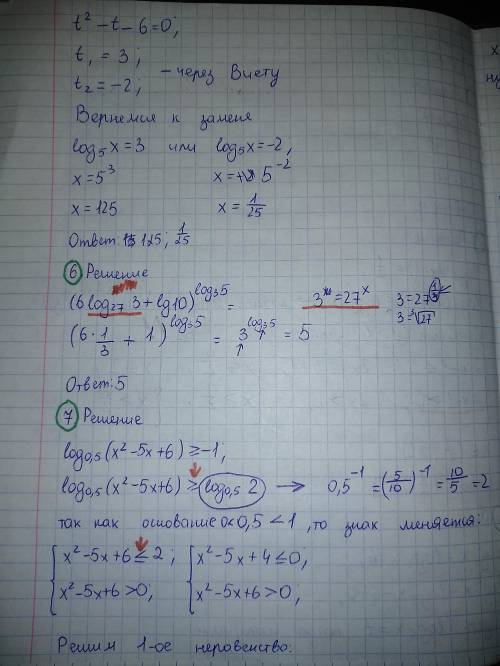 t² - t - 6 = 0;
t₁ = 3;
t₂ = -2; - через Виету
Вернемся к замене
log₅ x = 3 или log₅ x = -2,
x = 5³ x = 5⁻²
x = 125 x = 1/25
Ответ: 125; 1/25
6 Решение
(6 log₂₇ 3 + lg 10)^(log₃ 5) = 3 = 27^x 3 = 27^(1/3)
3 = ³√27
(6 · 1/3 + 1)^(log₃ 5) = 3^(log₃ 5) = 5
Ответ: 5
7 Решение
log₀,₅ (x² - 5x + 6) ≥ -1;
log₀,₅ (x² - 5x + 6) ≥ log₀,₅ 2 → 0,5⁻¹ = (5/10)⁻¹ = 10/5 = 2
так как основание 0 < 0,5 < 1, то знак меняется:
{ x² - 5x + 6 ≤ 2; { x² - 5x + 4 ≤ 0,
x² - 5x + 6 > 0; x² - 5x + 6 > 0,
Решим 1-ое неровенство: